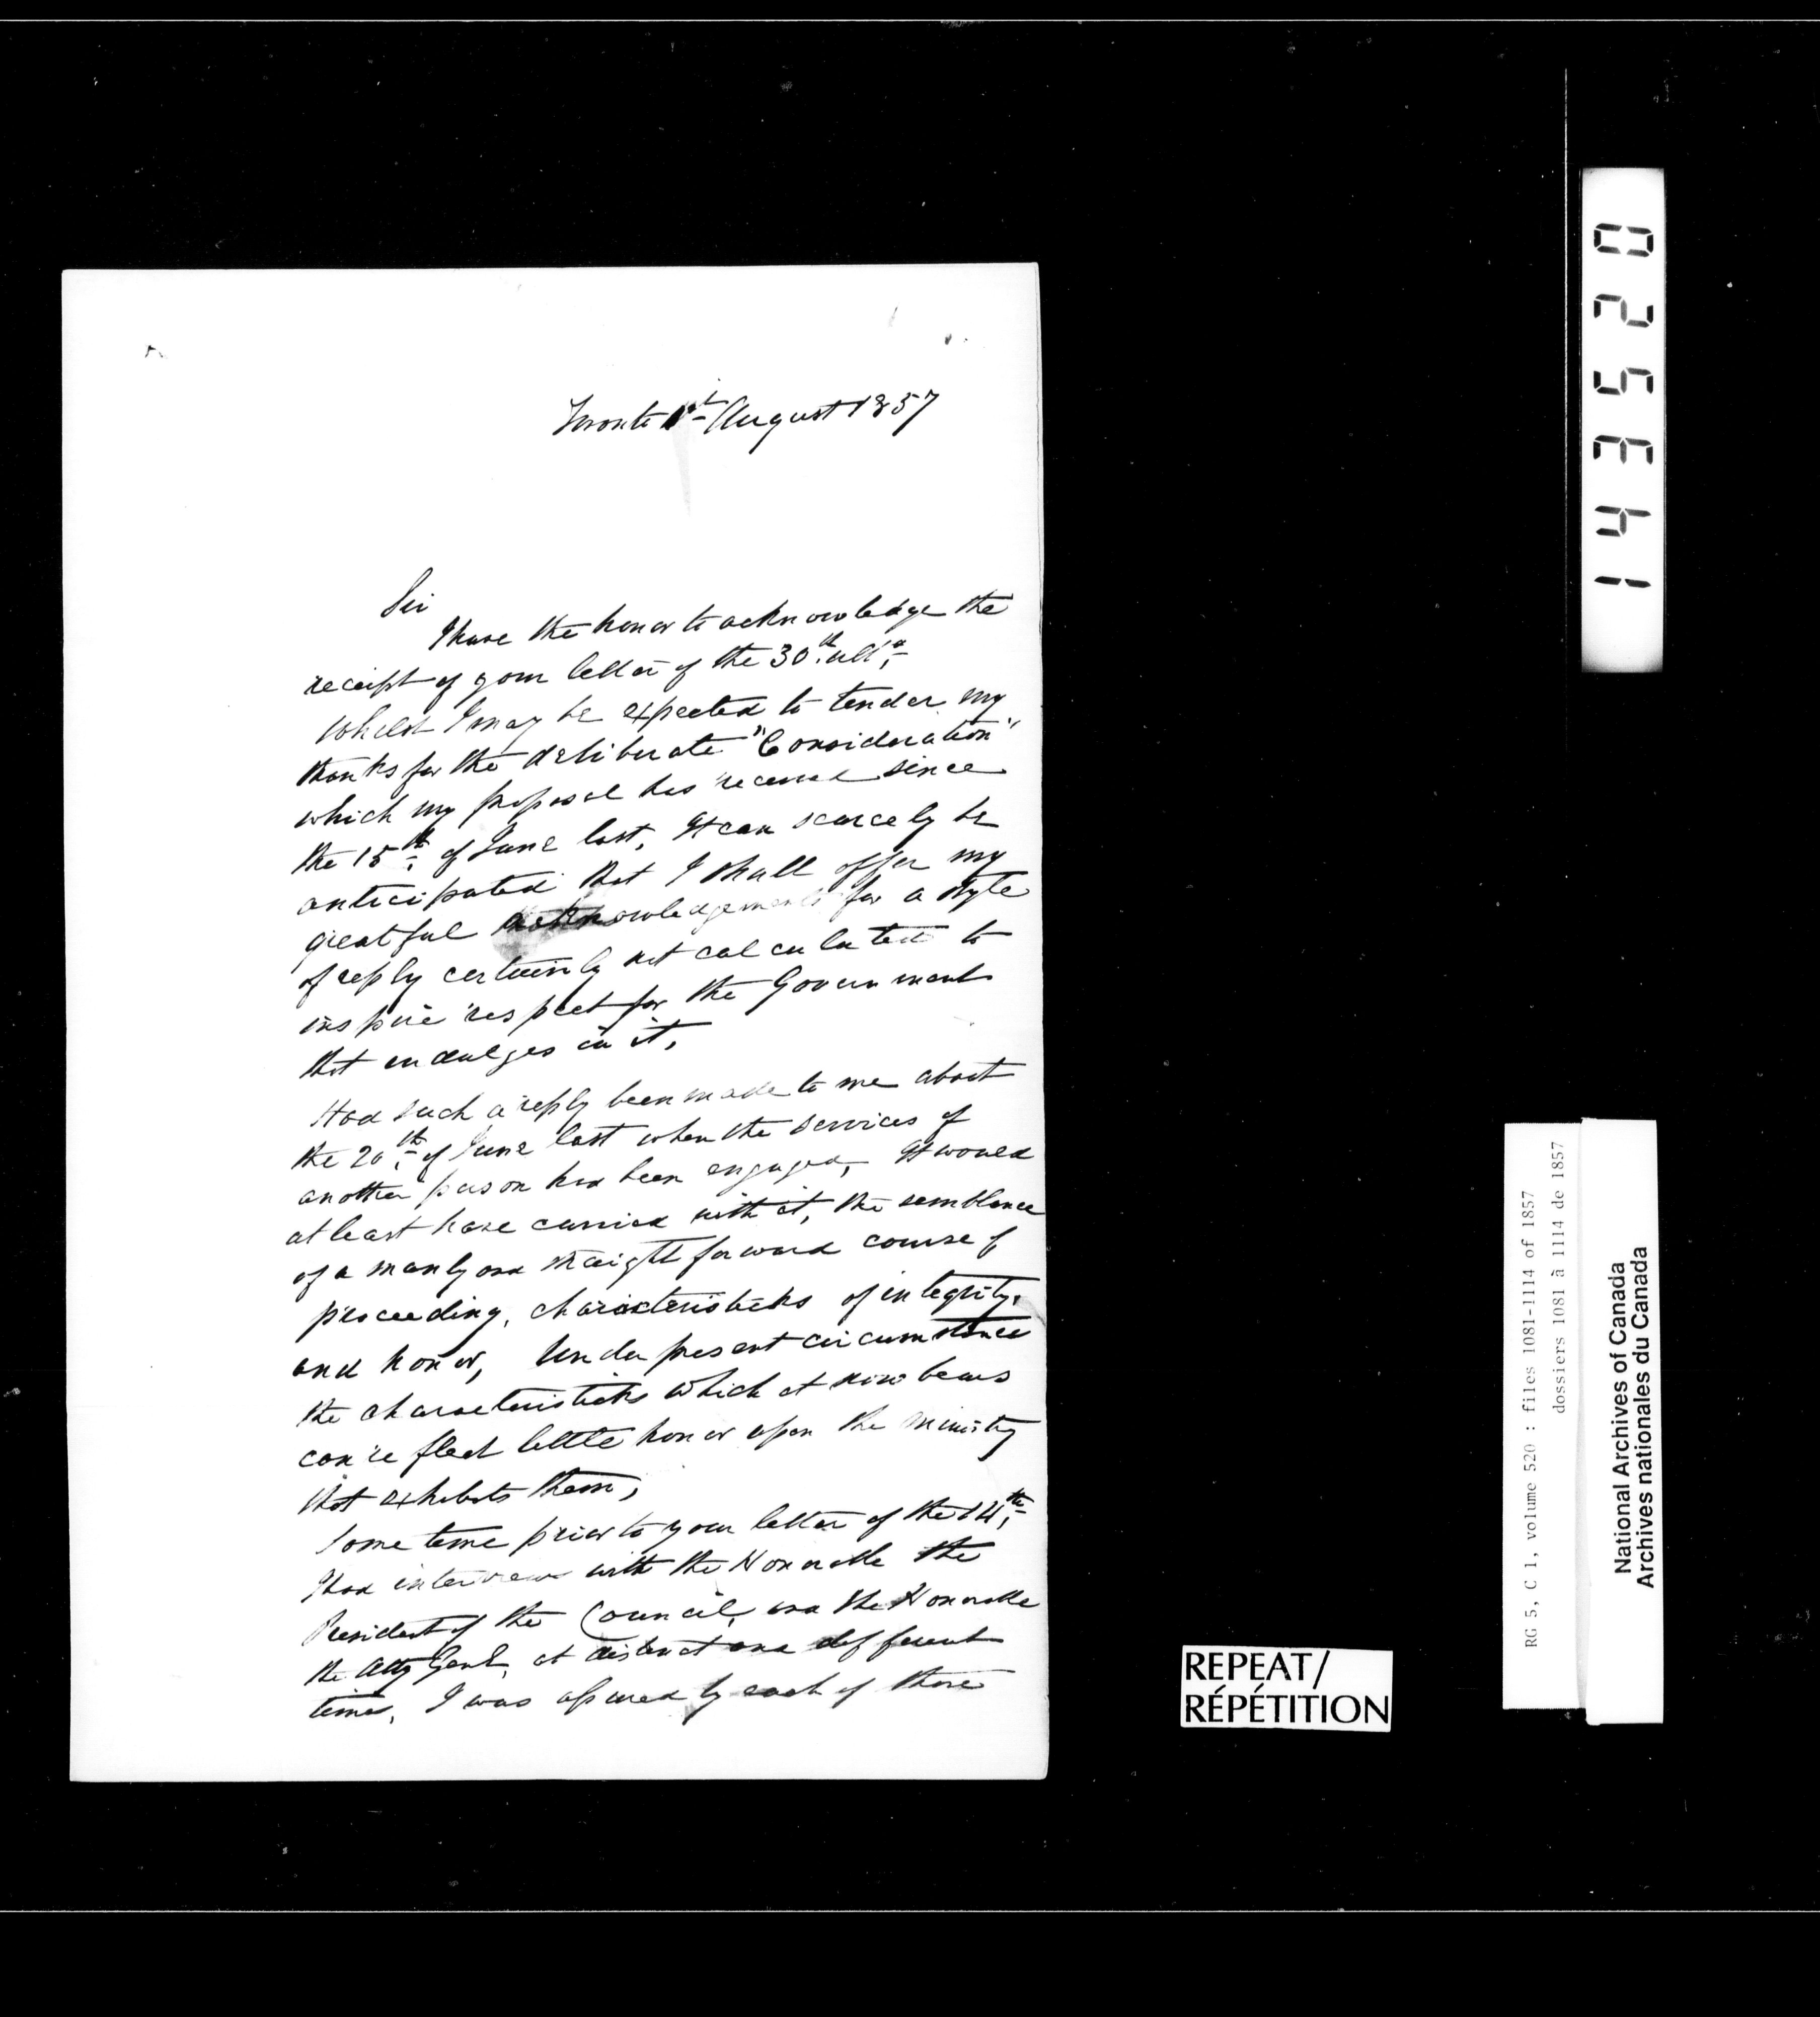 Toronto 1st August 1857
Sir
I have the honor to acknowledge the
receipt of your letter of the 30th. ulto.
Whilst I may be expected to tender my
thanks for the deliberate "Consideration"
which my proposal has received since
the 15th. of June last, It can scarcely be
anticipated that I shall offer my
greatful acknowledgements for a style
of reply certainly not calculated to
inspire respect for the Government
that indulges in it,
Had such a reply been made to me about
the 20th. of June last when the services of
another person had been engaged, It would
at least have carried with it, the semblance
of a manly and straight forward course of
proceeding, characteristicks of integrity,
and honor, Under present circumstance
the characteristicks which it now bears
can reflect little honor upon the Ministry
that exhibits them,
Some time prior to your letter of the 14th,
I had interviews with the Honorable the
President of the Council, and the Honorable
the Atty Genl, at distinct and different
times, I was assured by each of those
143520
RG 5, C 1, volume 520 : files 1081-1114 of 1857
dossiers 1081 à 1114 de 1857
National Archives of Canada
Archives nationales du Canada
REPEAT/
RÉPÉTITION